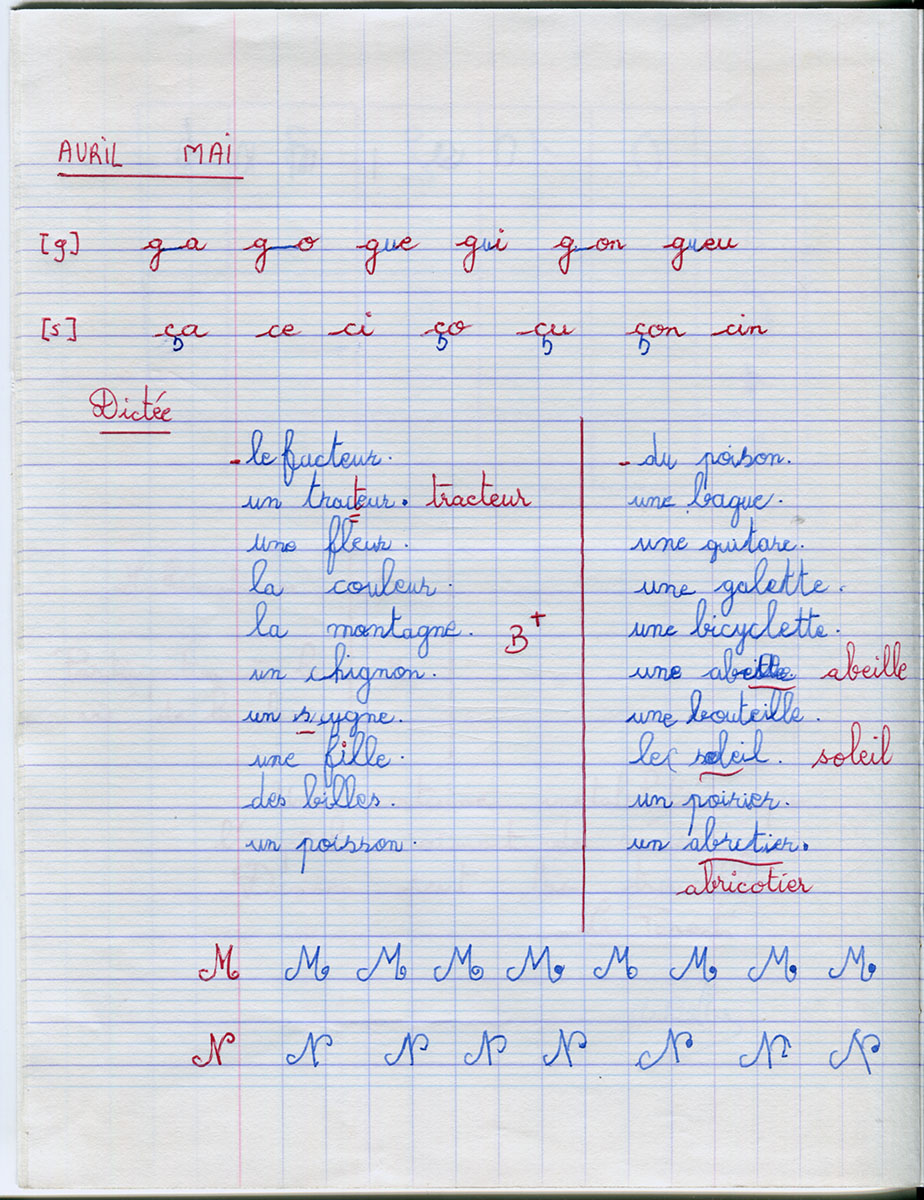 AVRIL MAI
[g] ga go gue gui gon gueu
[s] ça ce ci ço çu çon cin
Dictée
- le facteur.
un tracteur. tracteur
une fleur.
la couleur.
la montagne.
un chignon.
un sygne.
une fille.
des billes.
un poisson.
B+
- du poison.
une bague.
une guitare.
une galette.
une bicyclette.
une abeille. abeille
une bouteille.
le soleil. soleil
un poirier.
un abretier.
abricotier
M M M M M M M M M
N N N N N N N N